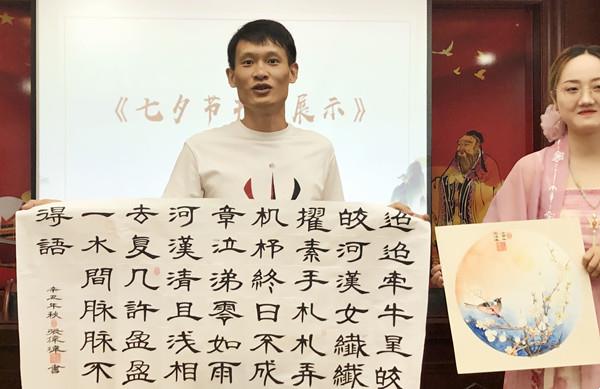 《七夕节 展示》
迢迢牵牛星皎
皎河漢女纖纖
擢素手札札弄
机杼終日不成
章泣涕零如雨
河漢清且浅相
去复几許盈盈
一水間脉脉不
得語
辛丑年秋 書